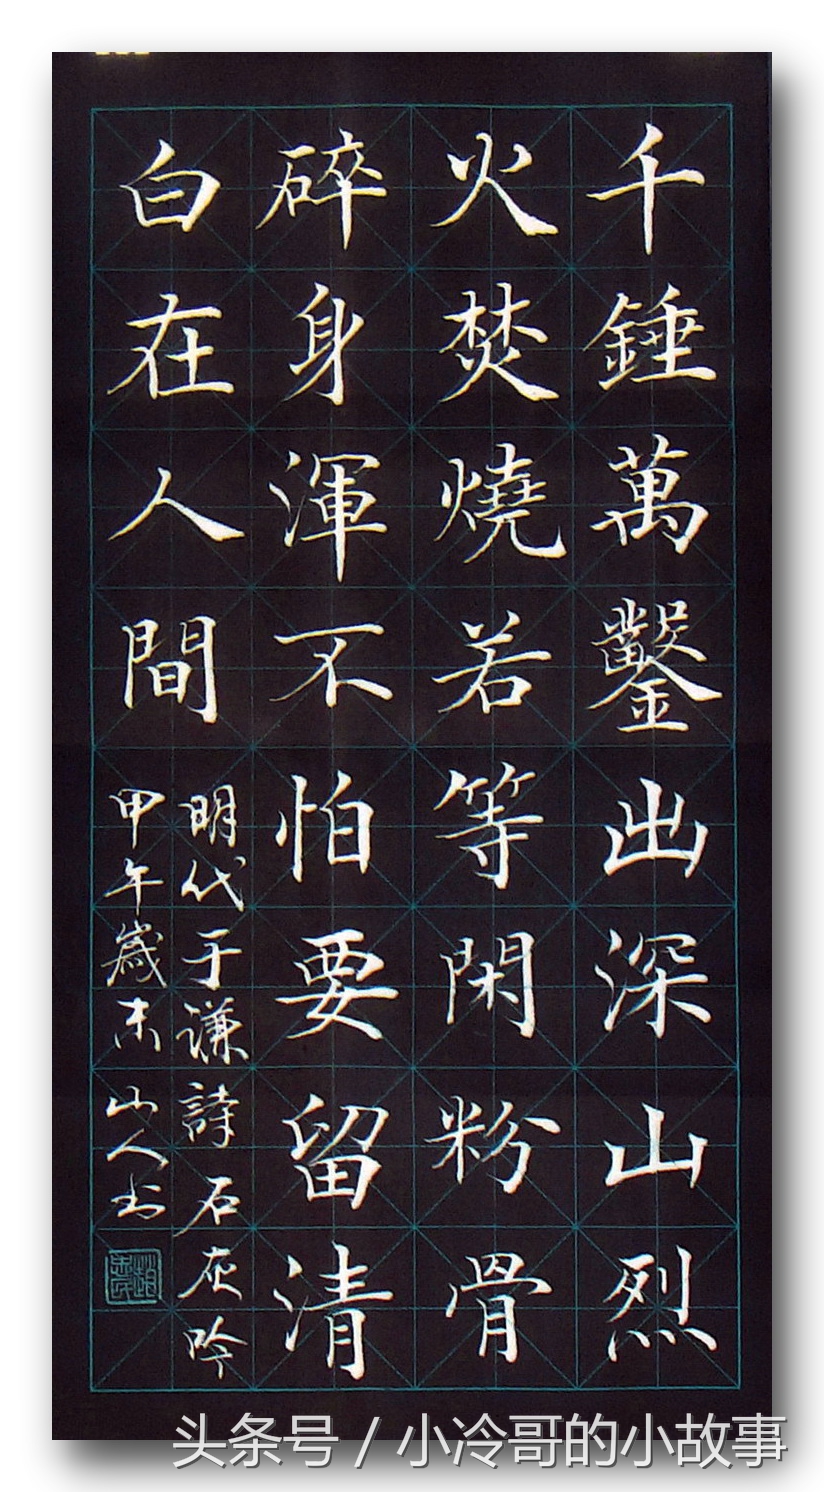 千錘萬鑿出深山烈
火焚燒若等閑粉骨
碎身渾不怕要留清
白在人間
明代于谦詩石灰吟
甲午歲末山人书
头条号 / 小冷哥的小故事